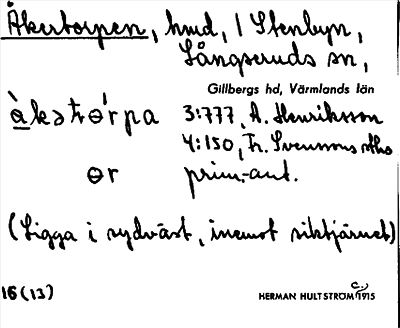 Åkertorpen, hmd, / Stenbyn,
Långseruds sn,
Gillbergs hd, Värmlands län
àkətɵ́rpa 3:777, A. Henriksson
4:150, Fr. Svenssons
ɵr prim.-ant.
(Ligga i sydväst, inemot siktjärnet)
16 (13) HERMAN HULTSTRÖM 1915